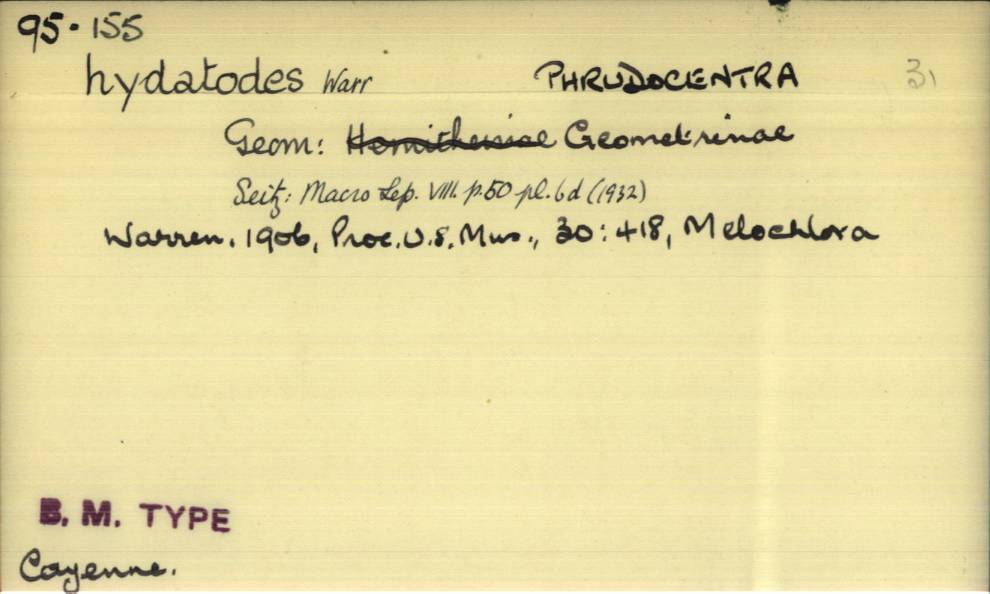 95.155
hydatodes Warr PHRUDOCENTRA 31
Geom: Hemitheinae Geometrinae
Seitz: Macro Lep. VIII. p.50 pl.6d (1932)
Warren. 1906, Proc. U.S. Mus., 30: 418, Melochlora
B. M. TYPE
Cayenne.